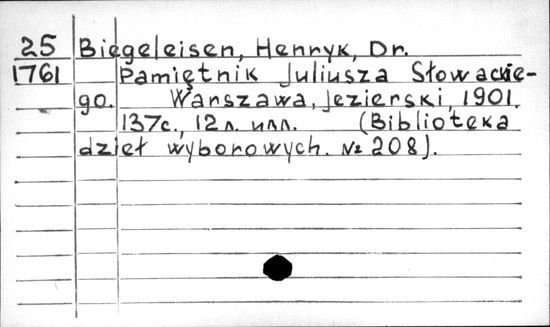 25 Biegeleisen, Henryk, Dr.
1761 Pamiętnik Juliusza Słowackie-
go. Warszawa, Jezierski, 1901.
137с., 12 л. илл. (Biblioteka
dzieł wyborowych. № 208).